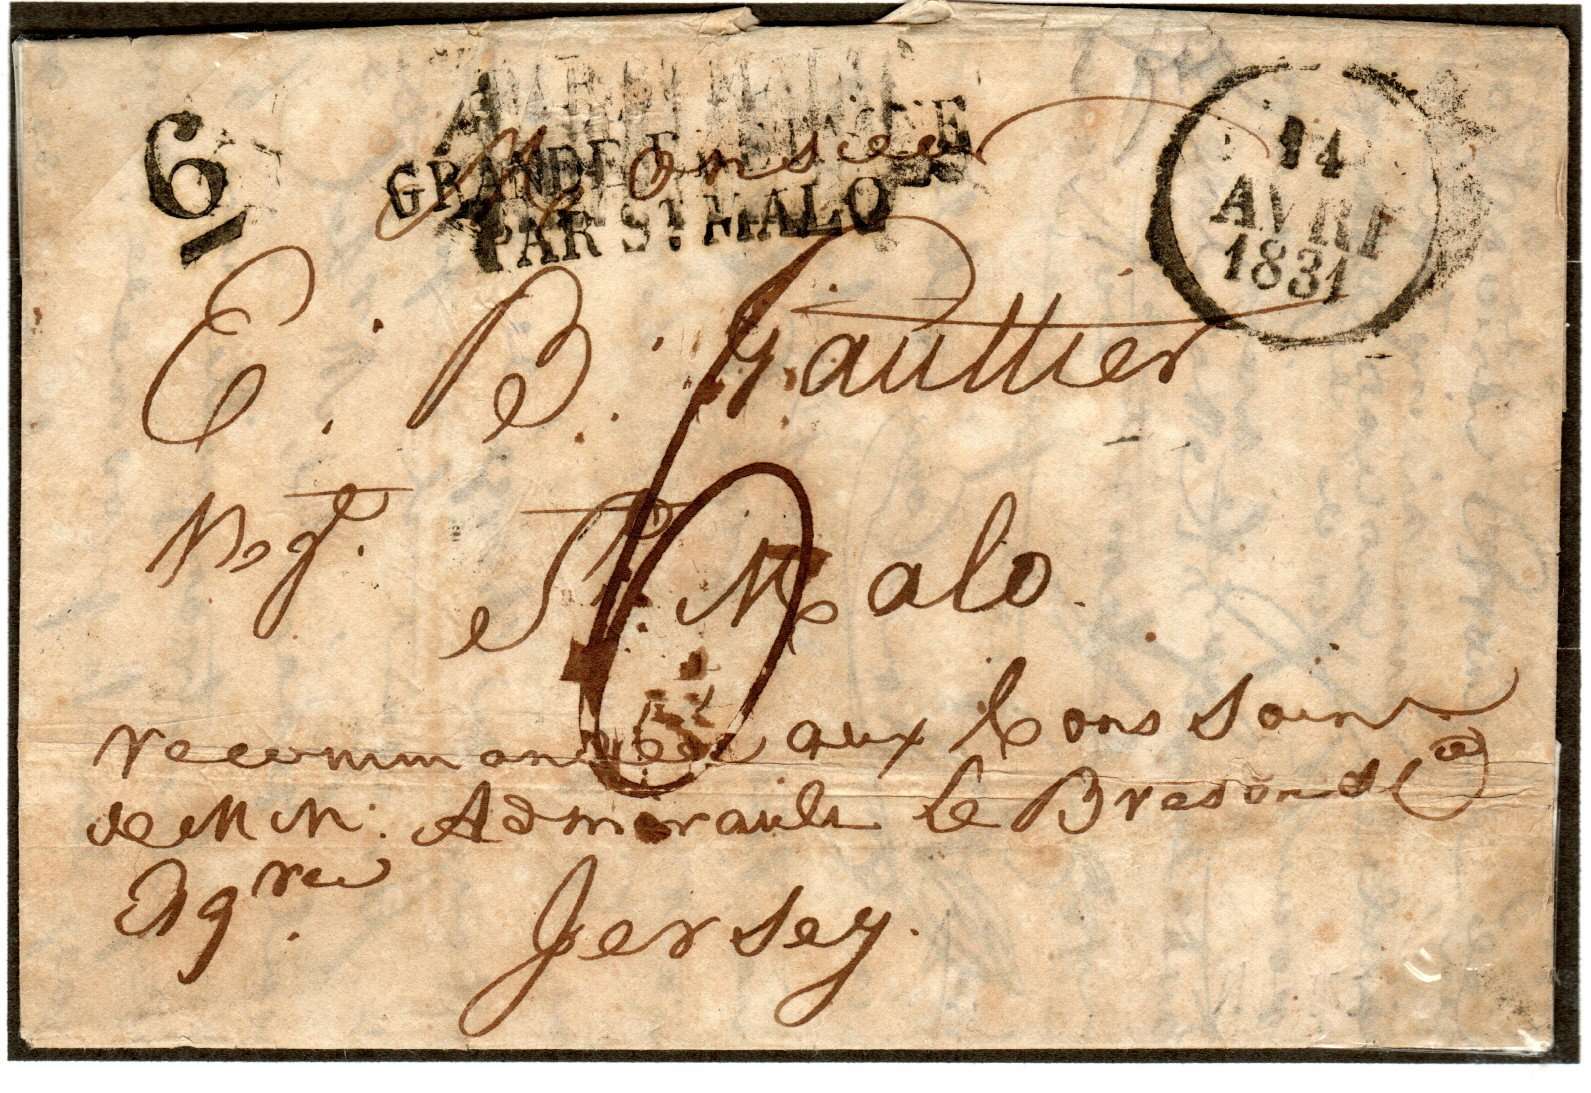 6
GRANDE BRETAGNE
PAR St MALO
14
AVRI
1831
Monsieur
E. B. Gaultier
Negt.
St. Malo.
6
recommandée aux bons soins
de MM: Admirault Le Breton & Ce
Jersey.